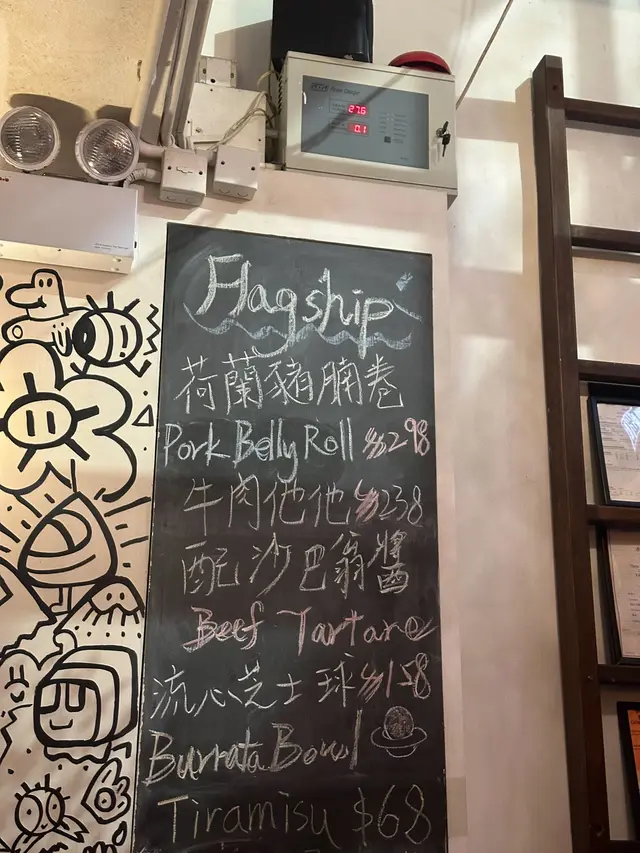 27.6
0.1
Flagship
荷蘭豬腩卷
Pork Belly Roll $298
牛肉他他 $238
配沙巴翁醬
Beef Tartare
流心芝士球 $158
Burrata Bowl
Tiramisu $68